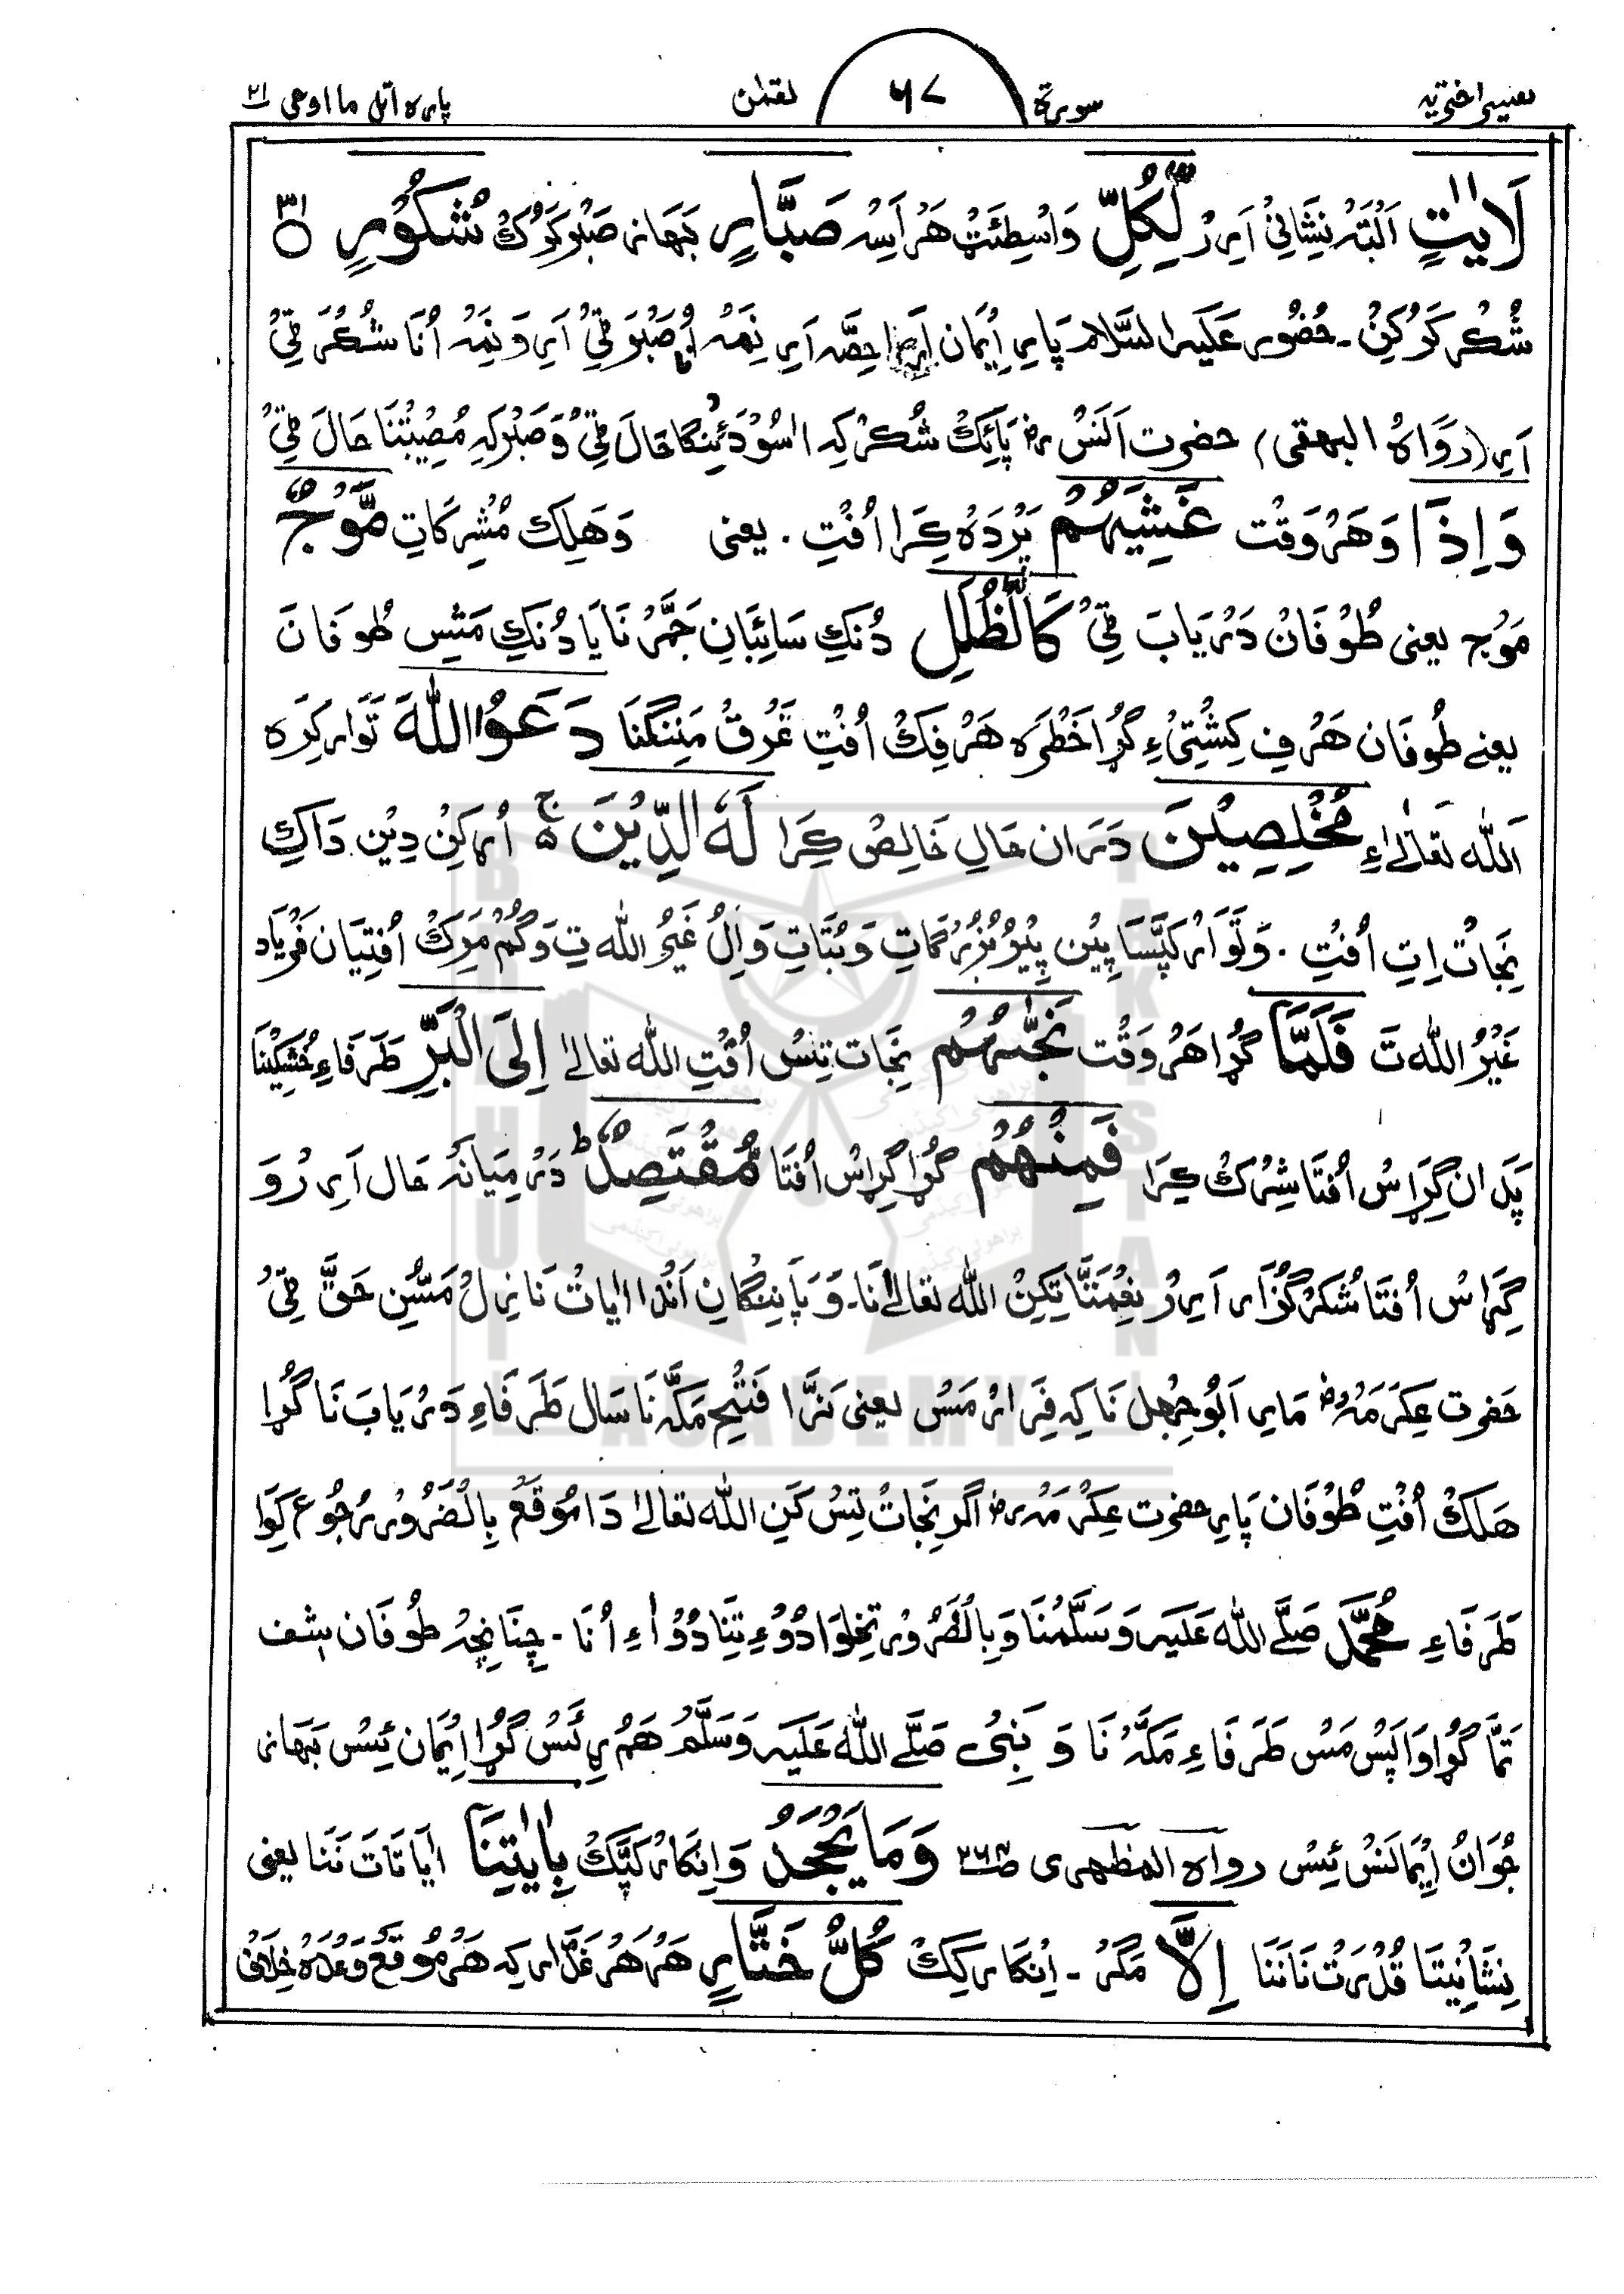 تفسیر اختریہ سورۃ ۶۷ لقمٰن پارہ اتل ما اوحی ۲۱
لَاٰيٰتٍ اَلْبَتَہ نِشَانِیْ اَیرْ لِّكُلِّ وَاسْطِئَتْ هَرْ اَسِہ صَبَّارٍ بَهَازْ صَبْرکَرُکْ شَكُوْرٍ ۳۱
شُکْر کَرُکِنْ ۔ حُضُور عَلَیہ السَّلام پَارِ اِیْمَان حِصَّہ اَرِ نِمَہ صَبْرَ ٹِیْ اَرِ وَ نِمَہ اُنَا شُکْرَ ٹِیْ
اَرِ (رَوَاہُ البہقی) حضرت اَنَسْ رض پَائِکْ شُکْر کِہ اسُوْدَئِیْنگَا حَالَ ٹِیْ وَ صَبْرکِہ مُصِیْبَتْنَا حَالَ ٹِیْ
وَاِذَا وَهَرْوَقْت غَشِيَهُمْ پَرْدَہْ کِرَا اُفْتِ . یعنی وَهَلِکْ مُشْرِکَاتِ مَّوْجٌ
مَوْج یعنی طُوْفَانْ دَرْیَابَ ٹِیْ كَالظُّلَلِ دُنْکِ سَائِبَانِ جَمَّرْ نَا یَا دُنْکِ مَشِسِ طُوفَانَ
یعنے طُوفَان هَرْفِ کِشْتِیْءِ گُڑا خَطْرَہ هَرْفِکْ اُفْتِ غَرْقْ مَنِنْگَنَا دَعَوُا اللّٰهَ تَوَارکِرَہ
اَللّٰہ تعَالٰےءِ مُخْلِصِيْنَ دَرَان حَالِ خَالِصْ کِرَا لَهُ الدِّيْنَ اُرکِنْ دِیْن دَاکِ
نِجَاتْ اِتِ اُفْتِ . وَتَوَارْکَپَّسَا پِیْن پِیْرُبُزُرْگَاتِ وَبُتَاتِ وَاِلُ غَیْرُ اللّٰہ تِ وَگُمْ مَرِکْ اُفْتِیَان فَرْیَاد
غَیْرُ اللّٰہ تَ فَلَمَّا گُڑا هَرْوَقْت نَجّٰىهُمْ نِجَات تِسْ اُفْتِ اللّٰہ تعالےٰ اِلَى الْبَرِّ طَرَفَاءِ خُشْکِیْنَا
پَدَ ان گِڑَاسْ اُفْتَا شِرْکْ کِرَا فَمِنْهُمْ گُڑا گِڑَاسْ اُفْتَا مُّقْتَصِدٌ ؕ دَرْمِیَانَہ حَال اَیرْ وَ
گِڑَاسْ اُفْتَا شُکْرگُزَار اَیرْ نِعْمَتَّا تِکِنْ اللّٰہ تعَالےٰ نَا۔ وَپَانِنْگَانِ اَنْدَا اٰیَاتْ نَازِلْ مَسُّنِ حَقَّ ٹِیْ
حَضرت عِکْرَمَہ رض مَارِ اَبُوجِهل نَا کِہ فِرَارْ مَسْ یعنی نَرَّا فَتْحِ مَکَّہ نَا سَال طَرَفَاءِ دَرْیَابَ نَا گُڑا
هَلَکْ اُفْتِ طُوْفَان پَارِ حضرت عِکْرَمَہ رض اگر نِجَاتْ تِسْ کَنِ اللّٰہ تعَالےٰ دَا مُوْقَعْ بِالضَّرُوْر رُجُوع کَوَا
طَرَفَاءِ مُحَمَّد صَلَّے اللّٰہ عَلَیہ وَسَلَّمْنَا وَ بِالضَّرُوْر تِخِوَا دُوْءِ تِنَا دُوْ اٰءِ اُنَا - چِنَانِچِہ طُوفَان شِف
تَمَّا گُڑا وَاپَسْ مَسْ طَرَفَاءِ مَکَّہ نَا وَ نَبِیْ صَلَّے اللّٰہ عَلَیہ وَسَلَّمْ هَمْرِئَسْ گُڑا اِیْمَان ئِسْ بَهَاز
جُوَانْ اِیْمَانَسْ ئِسْ رواہ المظهری ص۲۶۳ وَمَا يَجْحَدُ وَاِنْکَارْ کَپَّکْ بِاٰيٰتِنَآ اٰیَاتَاتَ نَنَا یعنی
نِشَانِیْتَا قُدْرَتْ نَا نَنَا اِلَّا مَگَرْ ۔ اِنْکَار کِکْ كُلُّ خَتَّارٍ هَرْ هَرْ غَدَّار کِہ هَرْمُوْقَعْ وَعْدَہ خِلَافْ